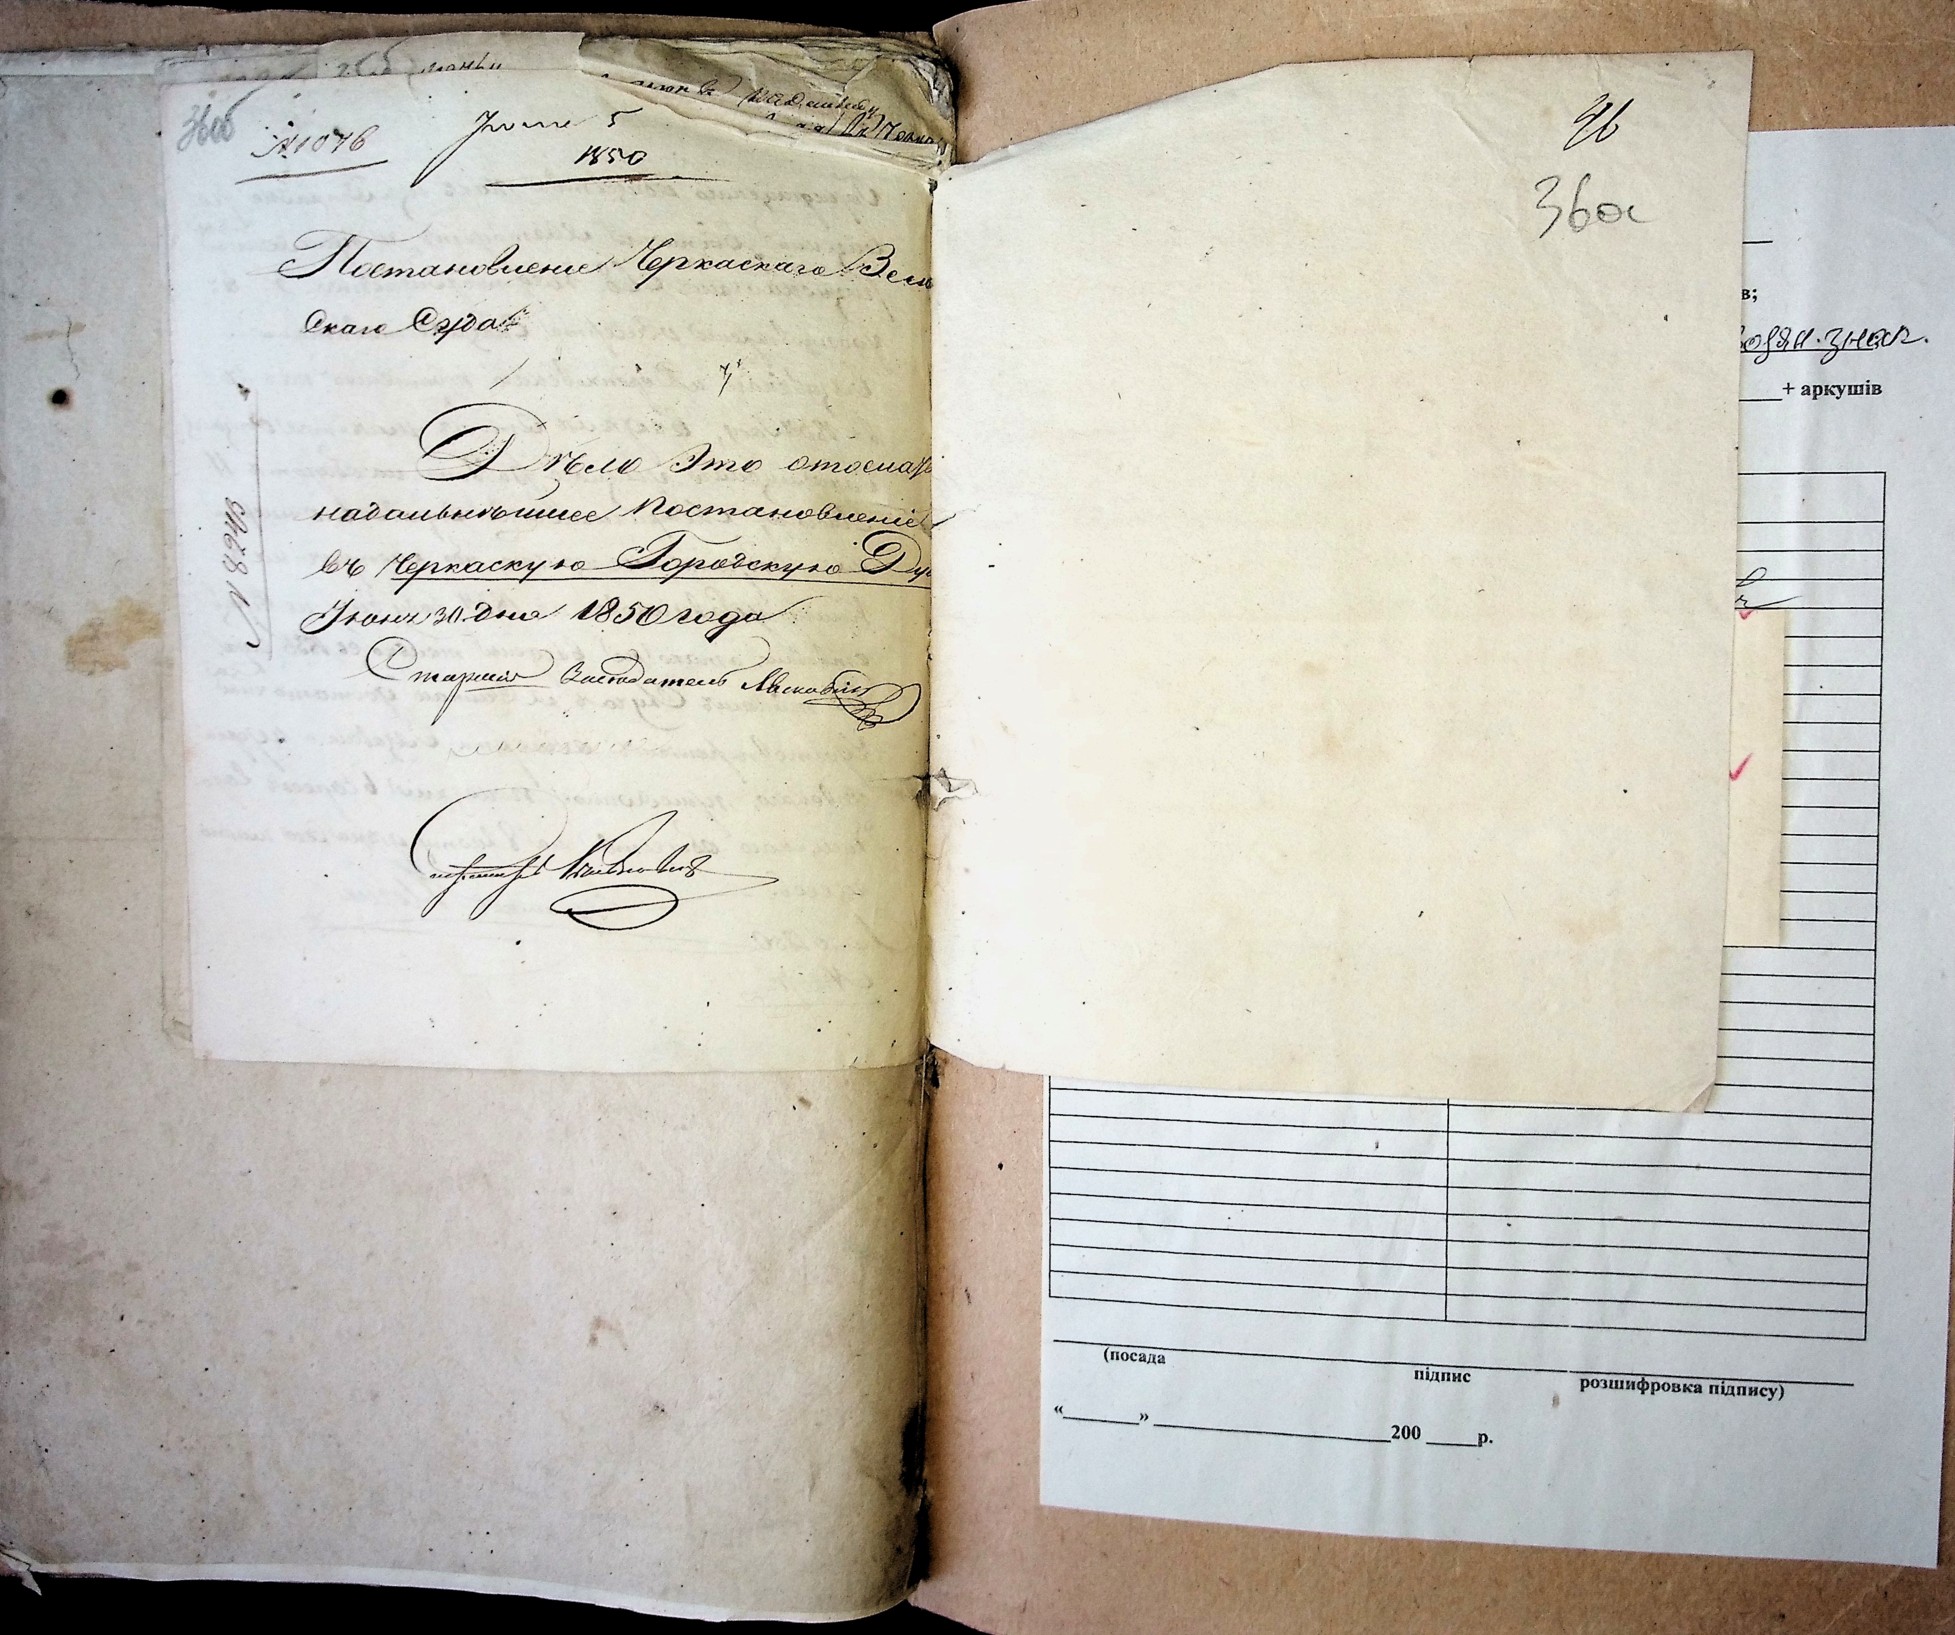 36об
№ 1076
5
1850
Постановление Черкаскаго Зем
скаго Суда
Дѣло это отослать
надальнѣйшее постановленіе
въ Черкаскую Городскую Ду
Іюня 30 дня 1850 года
Старшій Заседатель
№ 8243
36а
в;
водян. знак.
+ аркушів
(посада
підпис
розшифровка підпису)
«_______» ____________________200 ____р.